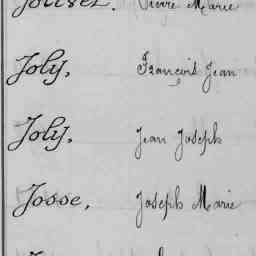 Pierre Marie
Joly, François Jean
Joly, Jean Joseph
Josse, Joseph Marie